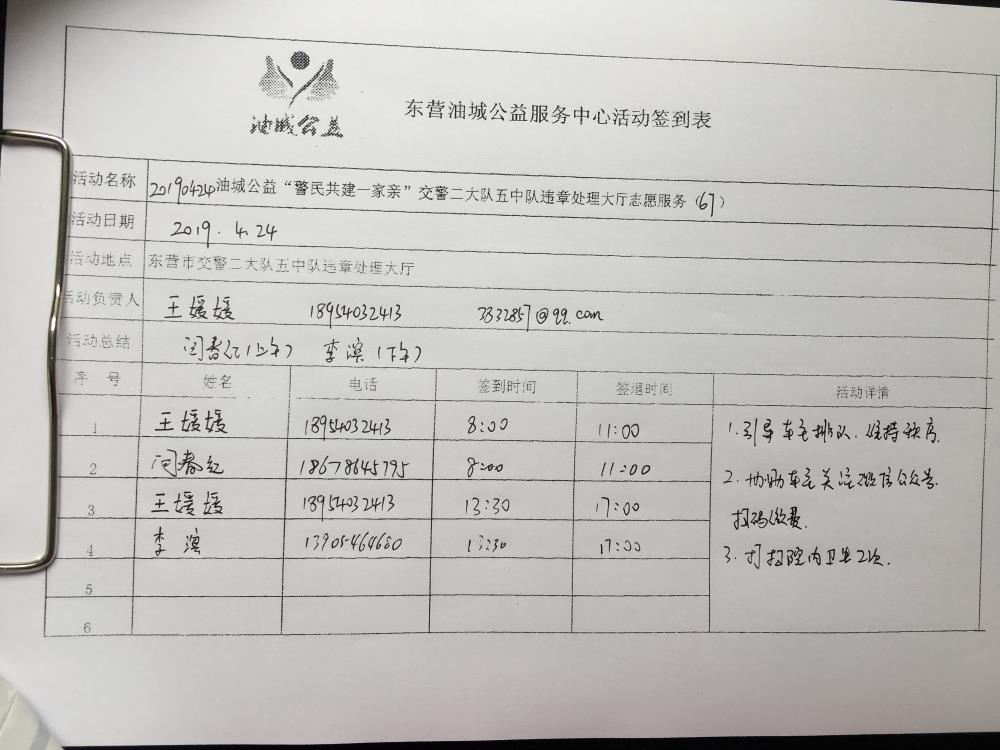 油城公益
东营油城公益服务中心活动签到表
活动名称 20190424油城公益“警民共建一家亲”交警二大队五中队违章处理大厅志愿服务（67）
活动日期 2019.4.24
活动地点 东营市交警二大队五中队违章处理大厅
活动负责人 王媛媛 18954032413 3832857@qq.com
活动总结 闫春红（上午） 李滨（下午）
序号 姓名 电话 签到时间 签退时间 活动详情
1 王媛媛 18954032413 8:00 11:00
2 闫春红 18678645795 8:00 11:00
3 王媛媛 18954032413 13:30 17:00
4 李滨 13905464680 13:30 17:00
5
6
1.引导车主排队、维持秩序.
2.协助车主关注微信公众号.
扫码缴费.
3.打扫院内卫生2次.